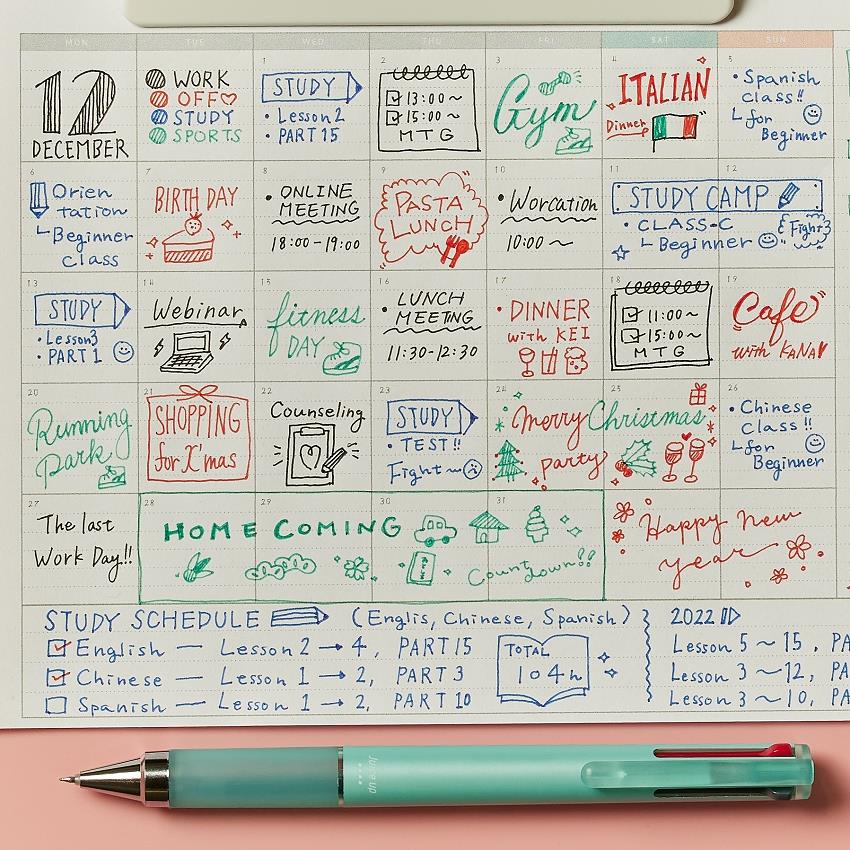 MON TUE WED THU FRI SAT SUN
12
DECEMBER
WORK
OFF
STUDY
SPORTS
1
STUDY
• Lesson 2
• PART 15
2
13:00~
15:00~
MTG
3
Gym
4
ITALIAN
Dinner
5
• Spanish
class!!
for
Beginner
6
Orien
tation
Beginner
class
7
BIRTH DAY
8
• ONLINE
MEETING
18:00-19:00
9
PASTA
LUNCH
10
• Worcation
10:00~
11 12
STUDY CAMP
• CLASS-C
Beginner
Fight
13
STUDY
• Lesson3
• PART 1
14
Webinar
15
fitness
DAY
16
• LUNCH
MEETING
11:30-12:30
17
• DINNER
with KEI
18
11:00~
15:00~
MTG
19
Cafe
with KANA
20
Running
Park
21
SHOPPING
for X'mas
22
Counseling
23
STUDY
• TEST!!
Fight~
24 25
Merry Christmas
party
26
• Chinese
class!!
for
Beginner
27
The last
Work Day!!
28 29 30 31
HOME COMING
Count down!!
Happy new
year
STUDY SCHEDULE (Englis, Chinese, Spanish)
English — Lesson 2 → 4, PART 15
Chinese — Lesson 1 → 2, PART 3
Spanish — Lesson 1 → 2, PART 10
TOTAL
104h
2022
Lesson 5 ~ 15, PA
Lesson 3 ~ 12, PA
Lesson 3 ~ 10, PA
Juice up